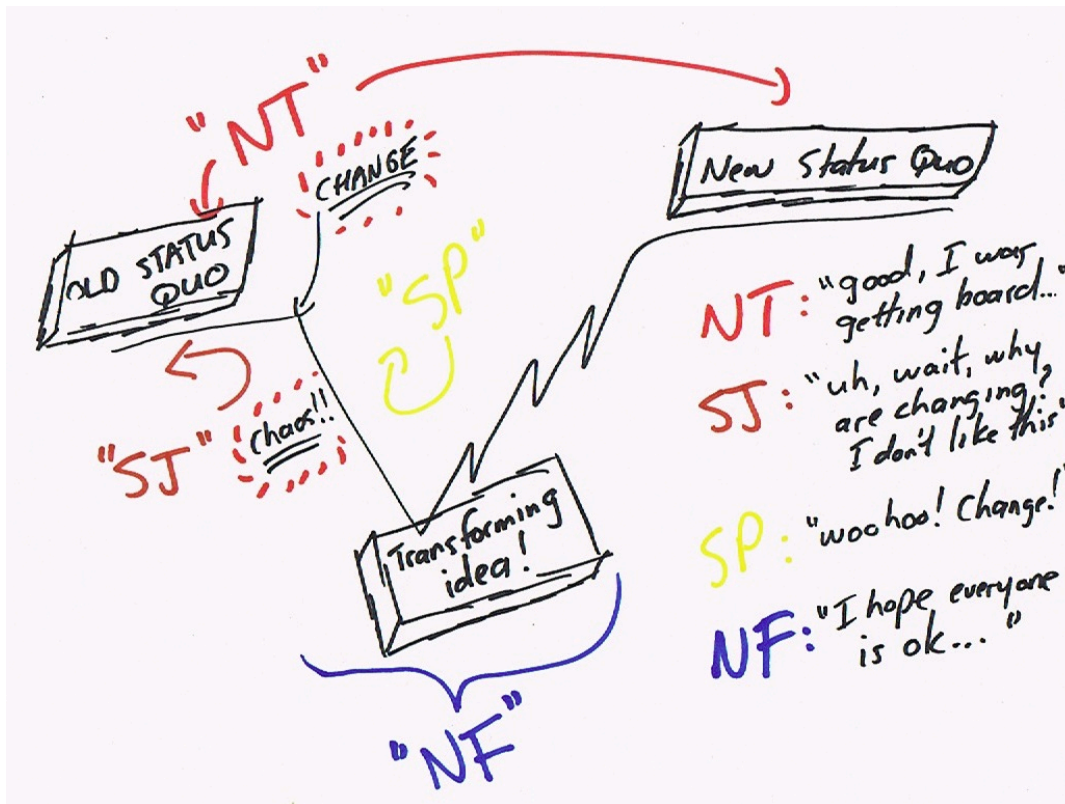 "NT"
CHANGE
New Status Quo
OLD STATUS
QUO
"SP"
"SJ"
Chaos!!
Transforming
idea!
"NF"
NT: "good, I was
getting board..."
SJ: "uh, wait, why
are changing?
I don't like this"
SP: "woohoo! Change!"
NF: "I hope everyone
is ok..."